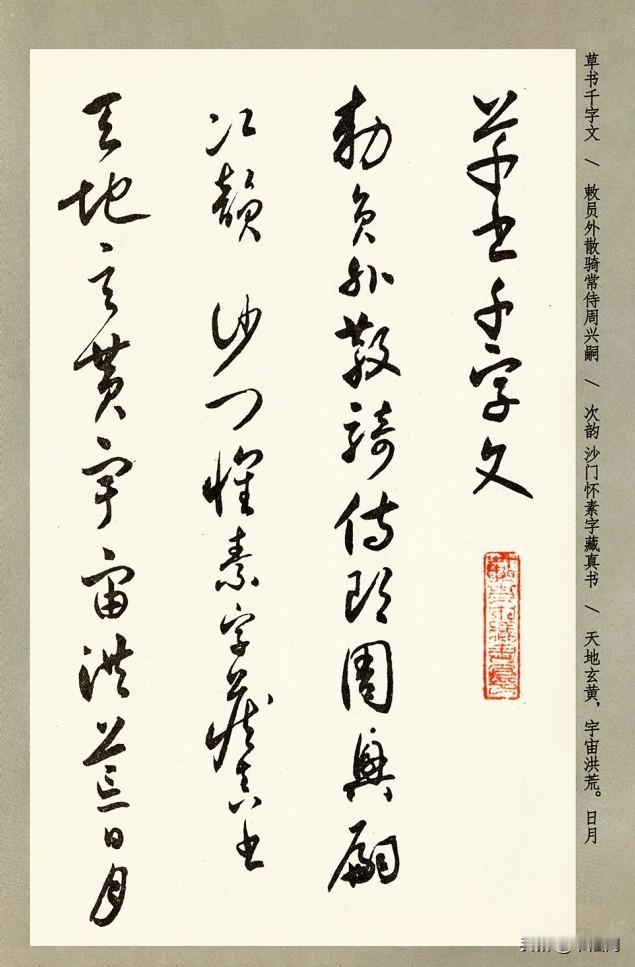 草书千字文 \ 敕员外散骑常侍周兴嗣 \ 次韵 沙门怀素字藏真书 \ 天地玄黄，宇宙洪荒。 日月
草書千字文
勅員外散騎侍郎周興嗣
次韻 沙門懷素字藏真書
天地玄黄宇宙洪荒日月